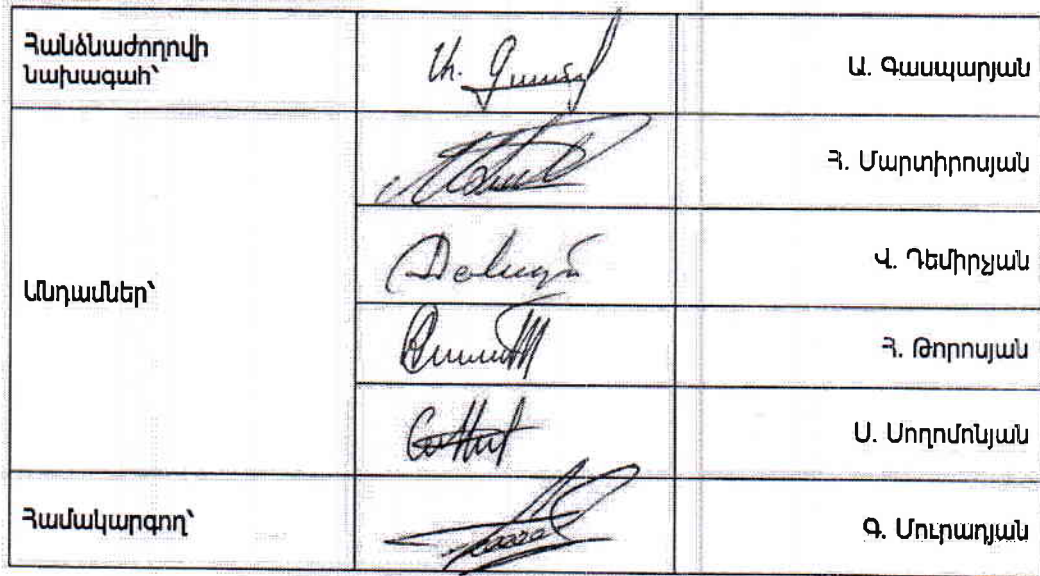 Հանձնաժողովի
նախագահ՝
Ա. Գասպարյան
Հ. Մարտիրոսյան
Անդամներ՝
Վ. Դեմիրչյան
Հ. Թորոսյան
Ս. Սողոմոնյան
Համակարգող՝
Գ. Մուրադյան